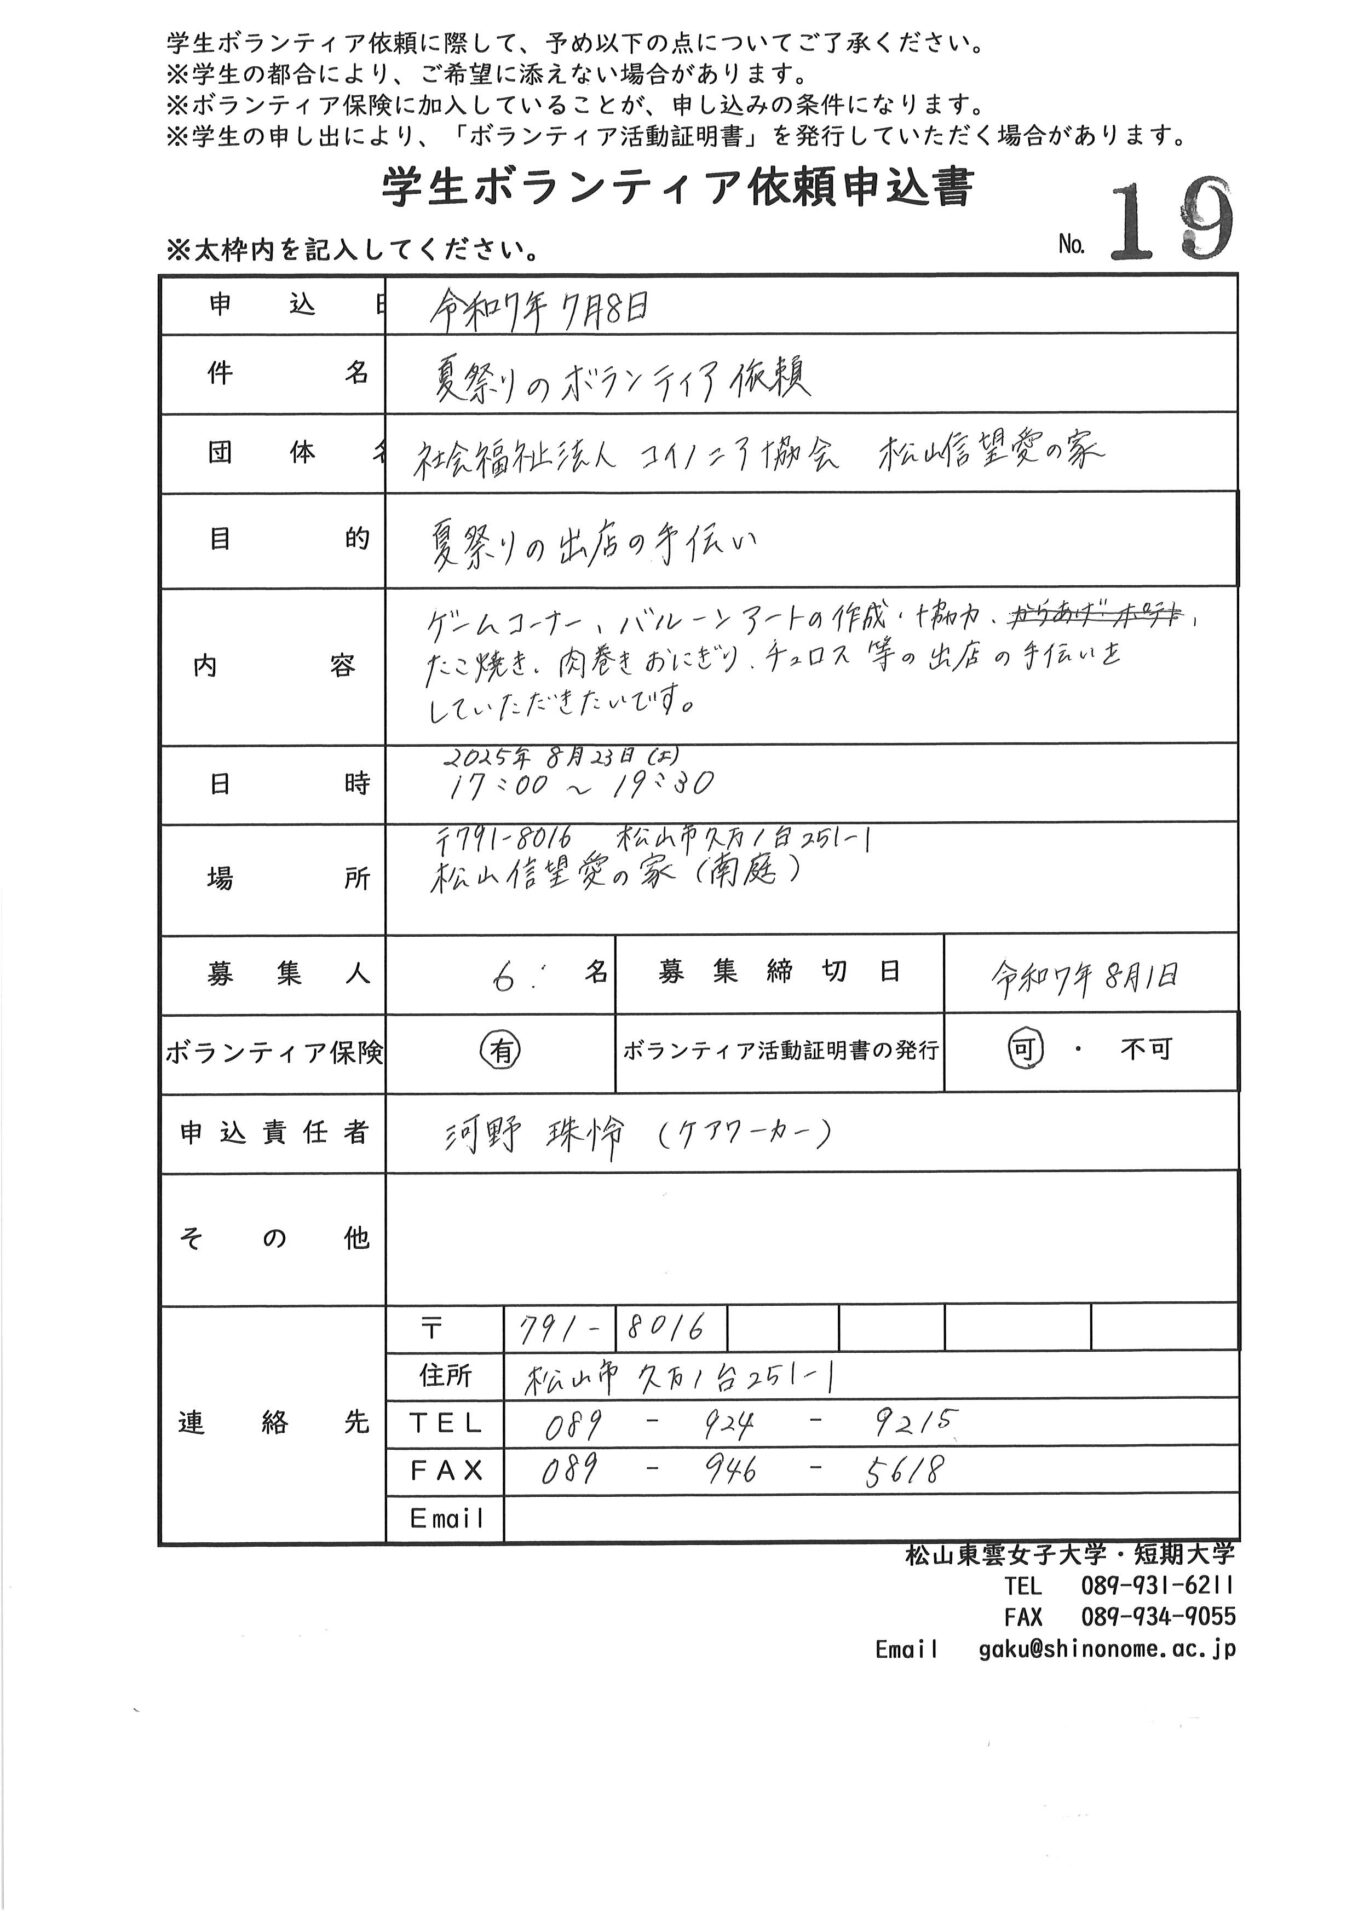 学生ボランティア依頼に際して、予め以下の点についてご了承ください。
※学生の都合により、ご希望に添えない場合があります。
※ボランティア保険に加入していることが、申し込みの条件になります。
※学生の申し出により、「ボランティア活動証明書」を発行していただく場合があります。
学生ボランティア依頼申込書
※太枠内を記入してください。
No. 19
申込日 令和7年7月8日
件名 夏祭りのボランティア依頼
団体名 社会福祉法人 コイノニア協会 松山信望愛の家
目的 夏祭りの出店の手伝い
内容 ゲームコーナー、バルーンアートの作成・協力、からあげ・ポテト、
たこ焼き、肉巻きおにぎり、チュロス等の出店の手伝いを
していただきたいです。
日時 2025年8月23日(土)
17:00〜19:30
場所 〒791-8016 松山市久万ノ台251-1
松山信望愛の家(南庭)
募集人 6 名 募集締切日 令和7年8月1日
ボランティア保険 有 ボランティア活動証明書の発行 可・不可
申込責任者 河野 珠怜(ケアワーカー)
その他
連絡先
〒 791-8016
住所 松山市久万ノ台251-1
TEL 089-924-9215
FAX 089-946-5618
Email
松山東雲女子大学・短期大学
TEL 089-931-6211
FAX 089-934-9055
Email gaku@shinonome.ac.jp